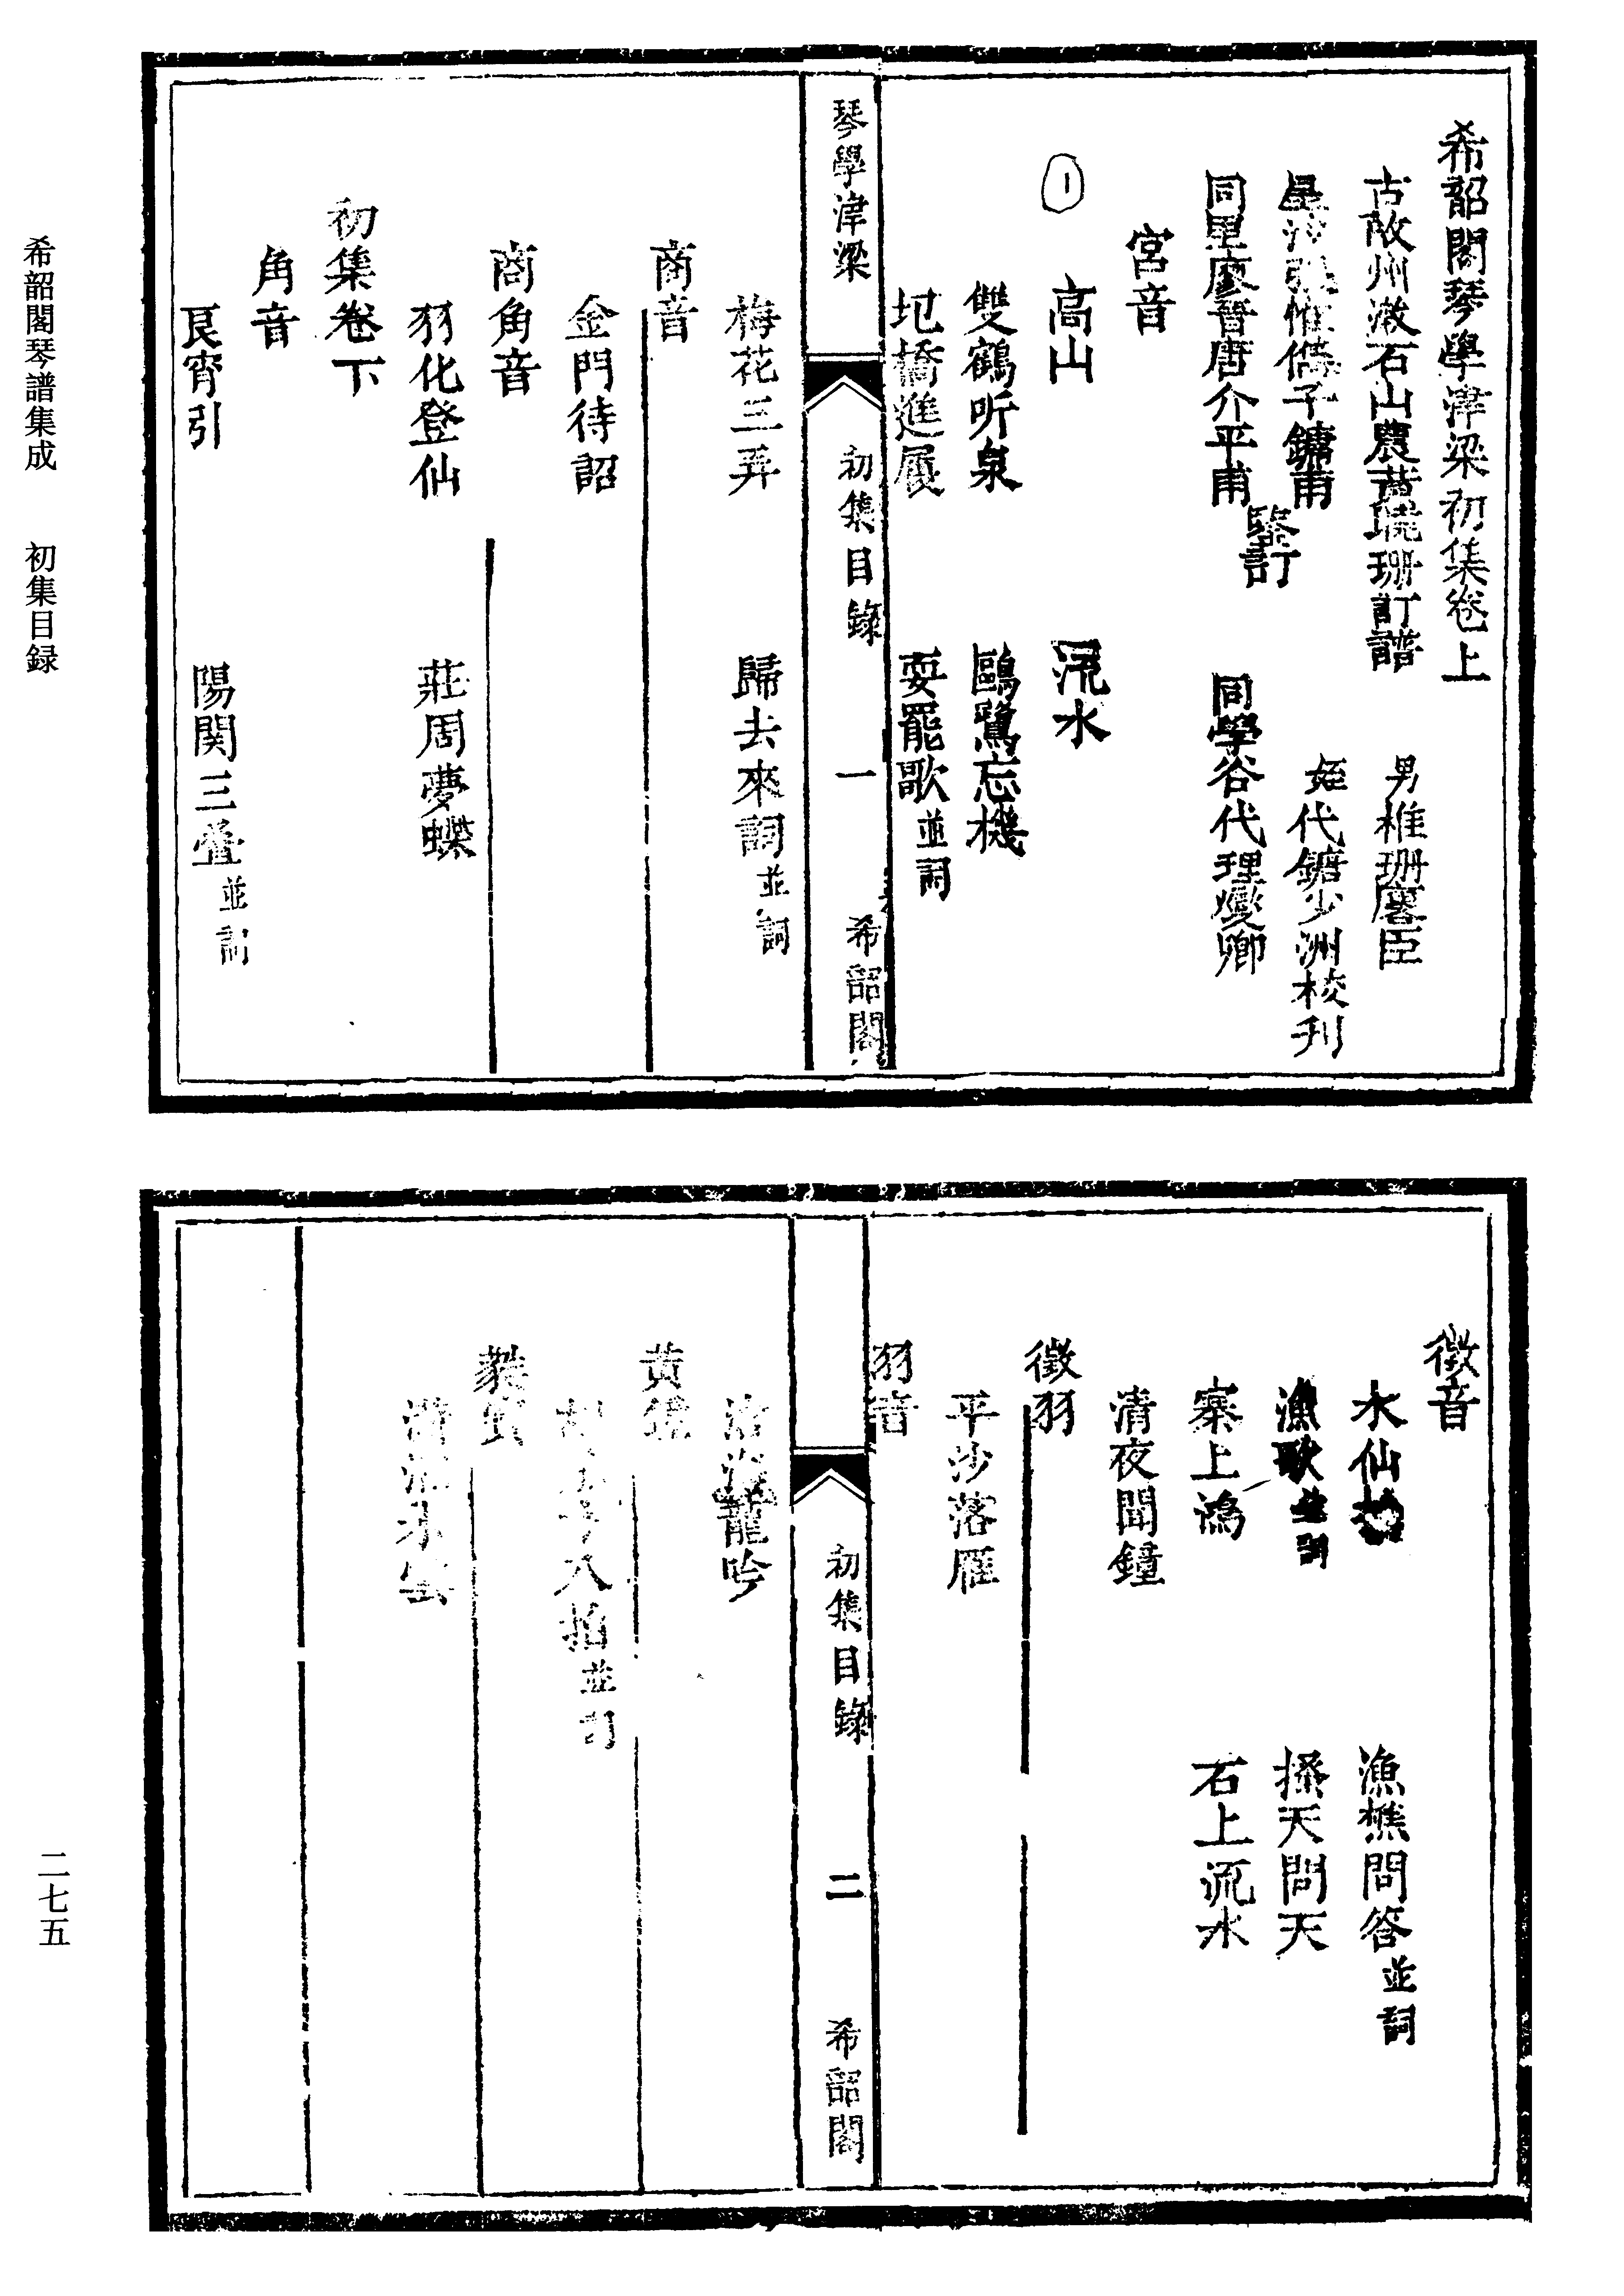 希韶閣琴學津梁初集卷上
古敀州瀓石山農黃曉珊訂譜
男椎珊麐臣
鏞甫
姪代鑣少洲校刊
同里廖晉唐介平甫
鑒訂
同學谷代理燮卿
宮音
高山
流水
雙鶴听泉
鷗鷺忘機
圯橋進履
耍罷歌並詞
琴學津梁
初集目錄
一
希韶閣
梅花三弄
歸去來詞並詞
商音
金門待詔
商角音
羽化登仙
莊周夢蝶
初集卷下
角音
良宵引
陽関三疊並詞
希韶閣琴譜集成
初集目録
徵音
水仙
漁樵問答並詞
漁歌並詞
搔天問天
塞上鴻
石上流水
清夜聞鐘
徵羽
平沙落雁
羽音
初集目錄
二
希韶閣
滄海龍吟
黃鐘
八拍並詞
蕤賓
瀟湘水雲
二七五